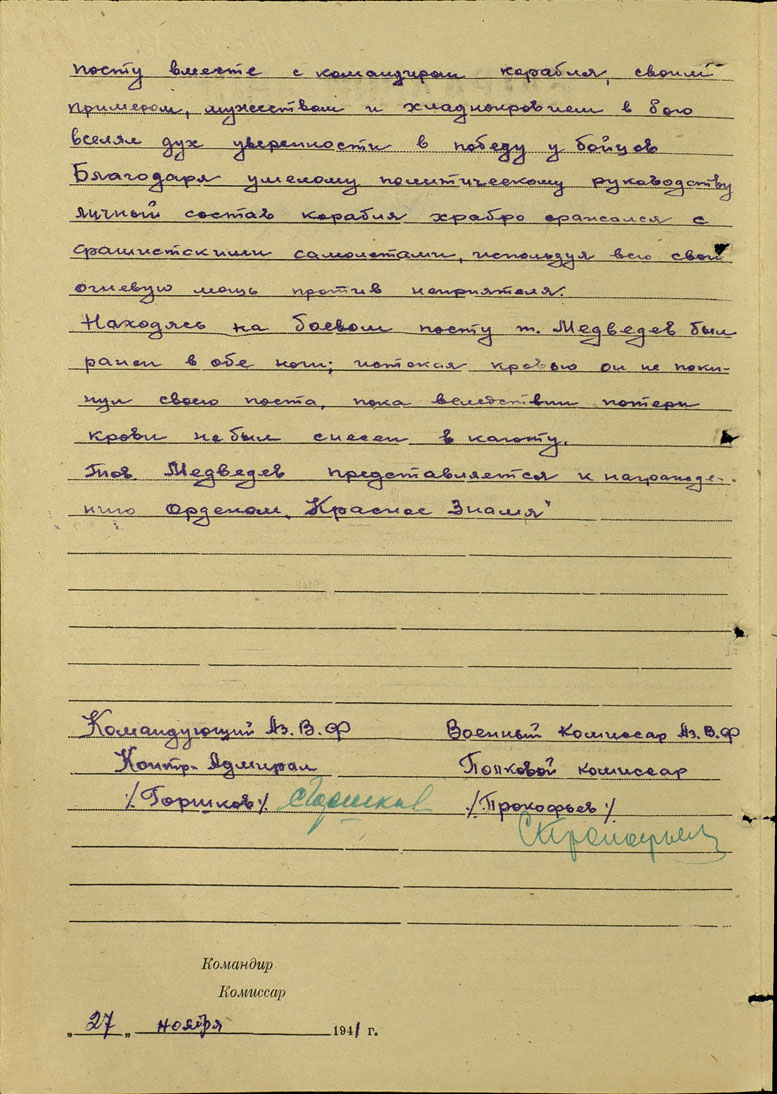 посту вместе с командиром корабля, своим
примером, мужеством и хладнокровием в бою
вселял дух уверенности в победу у бойцов
Благодаря умелому политическому руководству
личный состав корабля храбро сражался с
фашистскими самолетами, используя всю свою
огневую мощь против неприятеля.
Находясь на боевом посту т. Медведев был
ранен в обе ноги; истекая кровью он не поки-
нул своего поста, пока вследствии потери
крови не был снесен в каюту.
Тов. Медведев представляется к награжде-
нию Орденом „Красное Знамя"
Командующий Аз. В. Ф
Контр-Адмирал
/Горшков/. СГоршков
Военный Комиссар Аз. В. Ф
Полковой комиссар
/Прокофьев/.
СПрокофьев
Командир
Комиссар
„27„ ноября 1941 г.